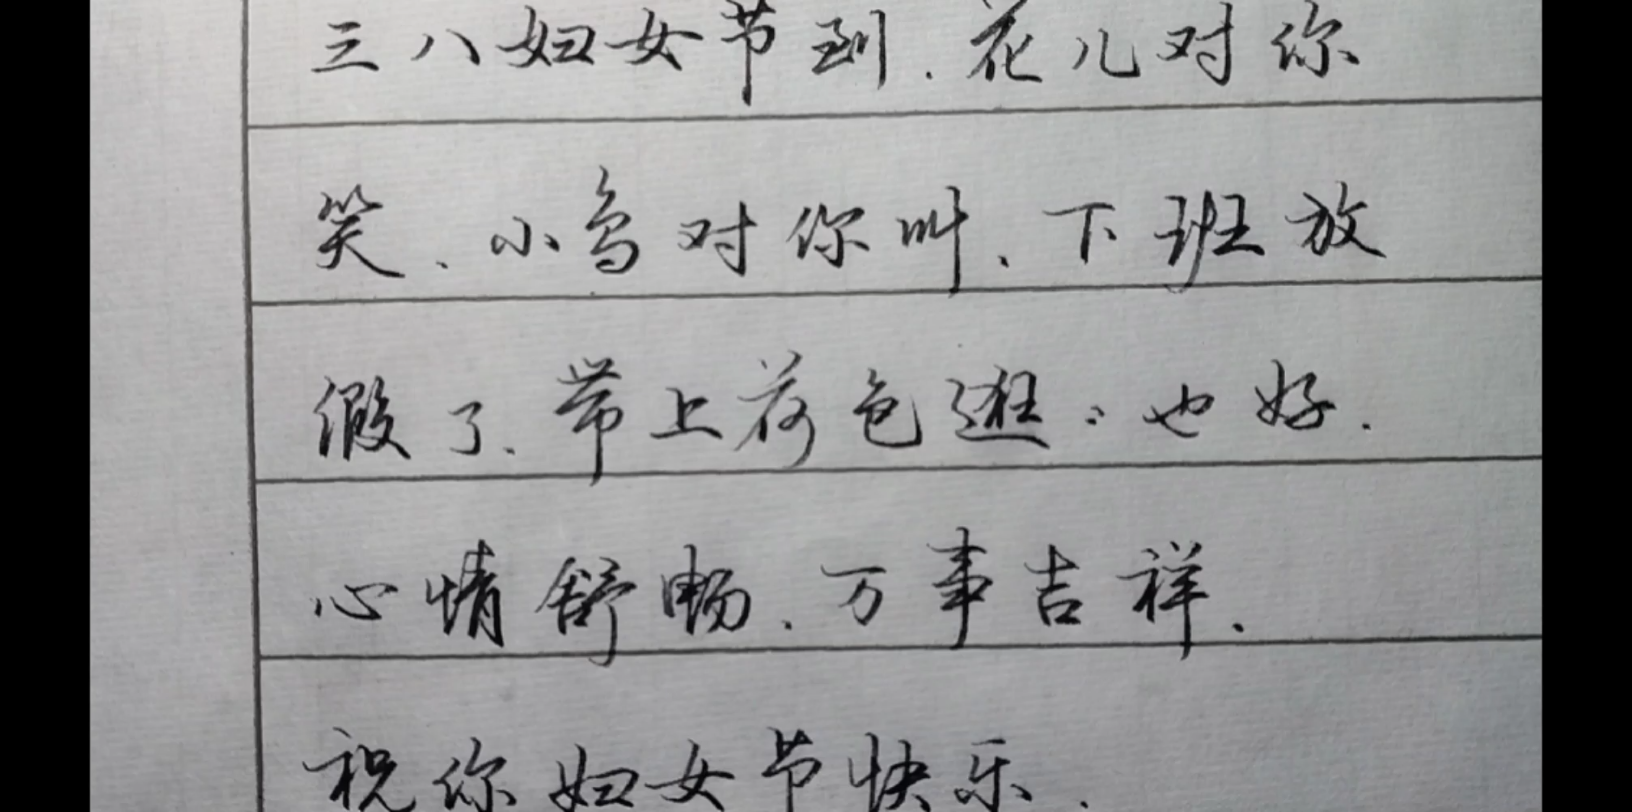 三八妇女节到.花儿对你
笑.小鸟对你叫.下班放
假了.带上荷包逛〻也好.
心情舒畅.万事吉祥.
祝你妇女节快乐.